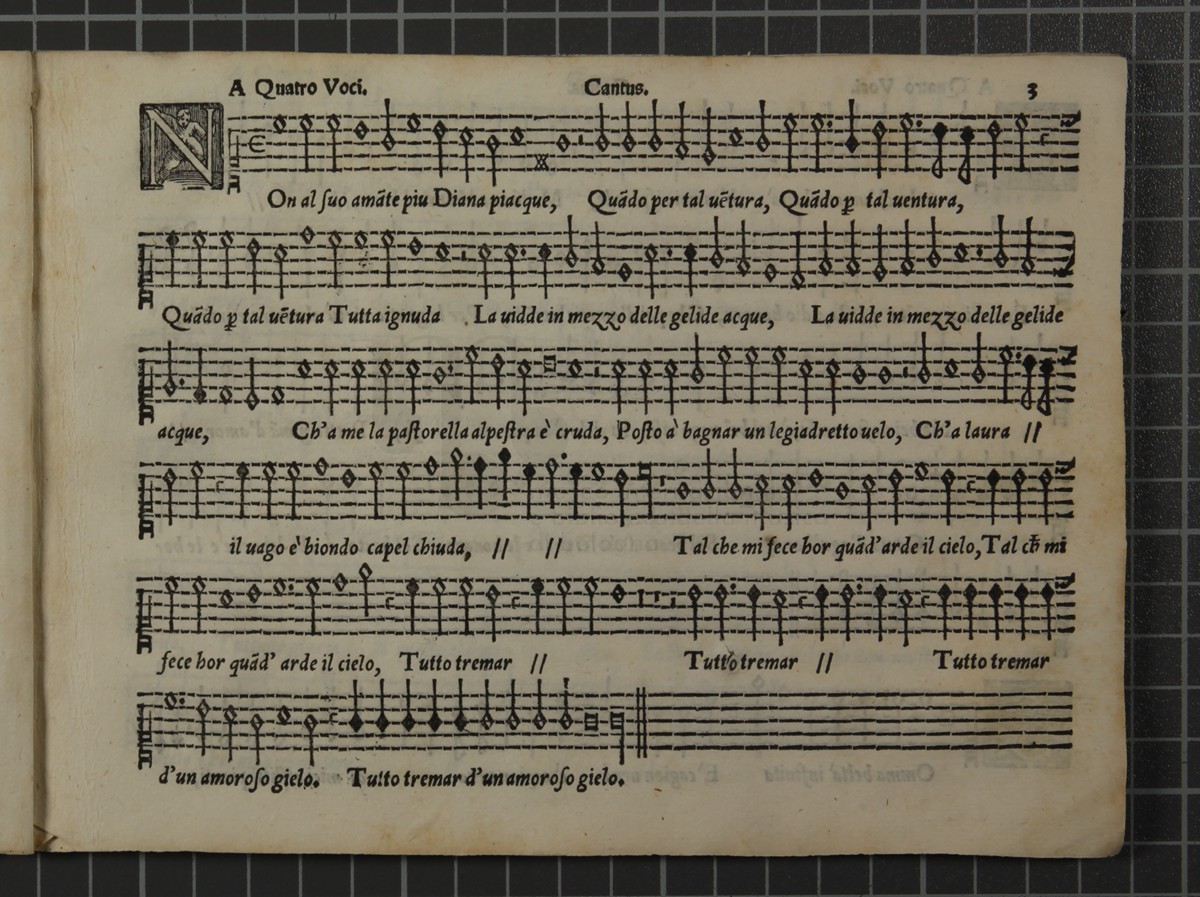 A Quatro Voci. Cantus. 3
NOn al ſuo amāte piu Diana piacque, Quādo per tal uētura, Quādo ꝑ tal uentura,
Quādo ꝑ tal uētura Tutta ignuda La uidde in mezzo delle gelide acque, La uidde in mezzo delle gelide
acque, Ch'a me la paſtorella alpeſtra è cruda, Poſto à bagnar un legiadretto uelo, Ch'a laura //
il uago è biondo capel chiuda, // // Tal che mi fece hor quād'arde il cielo, Tal cħ mi
fece hor quād' arde il cielo, Tutto tremar // Tutto tremar // Tutto tremar
d'un amoroſo gielo. Tutto tremar d'un amoroſo gielo.